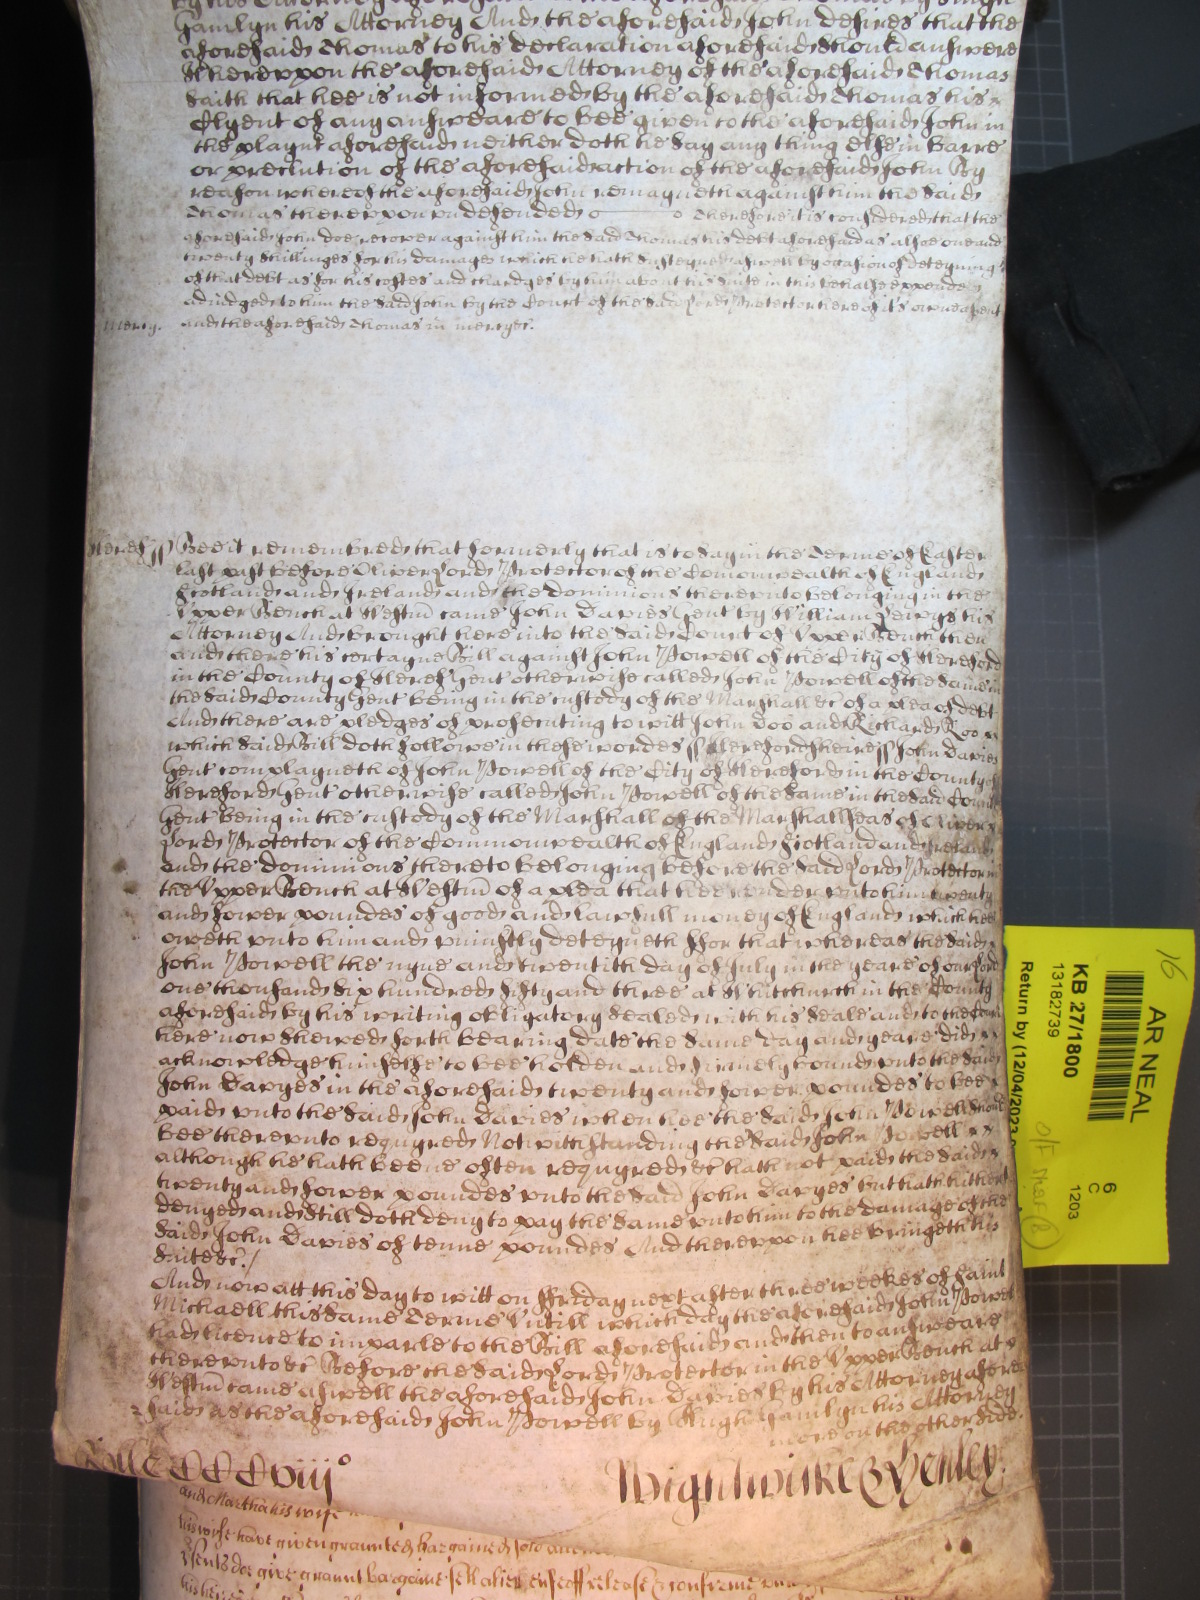 Gamlyn his Attorney And the aforesaid John desires that the
aforesaid Thomas to his declaration aforesaid should answere
Wherevpon the aforesaid Attorney of the aforesaid Thomas
saith that hee is not informed by the aforesaid Thomas his
Clyent of any answeare to bee given to the aforesaid John in
the playnt aforesaid neither doth he say any thing else in barre
or preclution of the aforesaid action of the aforesaid John By
reason whereof the aforesaid John remayneth against him the said
Thomas therevpon vndefended Therefore it is considered that the
aforesaid John doe recover against him the said Thomas his debt aforesaid as alsoe one and
twenty shillinges for his damages which he hath susteyned aswell by occasion of deteyning
of that debt as for his costes and chardges by him about his suite in this behalfe expended
adiudged to him the said John by the Court of the said Lord Protector here of it's owne assent
mercy. and the aforesaid Thomas in mercye.
Heref ss Bee it remembred that formerly that is to say in the Terme of Easter
last past before Oliver Lord Protector of the Comonwealth of England
Scotland and Ireland and the dominions therevnto belonging in the
Vpper Bench at Westm came John Davies Gent by William his
Attorney And brought here into the said Court of Vpper Bench then
and there his certayne Bill against John Powell of the City of Hereford
in the County of Heref Gent otherwise called John Powell of the same in
the said County Gent being in the custody of the Marshall &c of a plea of debt
And there are pledges of prosecuting to witt John Doo and Richard Roo
which said Bill doth followe in these wordes ss Herefordsheire ss John Davies
Gent complayneth of John Powell of the City of Hereford in the County of
Hereford Gent otherwise called John Powell of the same in the said County
Gent being in the custody of the Marshall of the Marshallseas of Oliver
Lord Protector of the Commonwealth of England Scotland and Ireland
and the dominions thereto belonging before the said Lord Protector in
the Vpper Bench at Westm of a plea that hee render vnto him twenty
and fower poundes of good and lawfull money of England which hee
oweth vnto him and vniustly deteyneth ffor that whereas the said
John Powell the nyne and twentith day of July in the yeare of our Lord
one thousand six hundred fifty and three at Whitchurch in the County
aforesaid by his writing obligatory sealed with his seale and to the Court
here now shewed forth bearing date the same day and yeare did
acknowledge himselfe to bee holden and firmely bound vnto the said
John Davyes in the aforesaid twenty and fower poundes to bee
paid vnto the said John Davies when hee the said John Powell should
bee therevnto requyred Notwithstanding the said John Powell
although he hath beene often requyred &c hath not paid the said
twenty and fower poundes vnto the said John Davyes but hath hitherto
denyed and still doth deny to pay the same vnto him to the damage of the
said John Davies of tenne poundes And therevpon hee bringeth his
suite &c./
And now att this day to witt on ffriday next after three weekes of Saint
Michaell this same Terme Vntill which day the aforesaid John Powell
had licence to imparle to the Bill aforesaid and then to answeare
therevnto &c Before the said Lord Protector in the Vpper Bench at
Westm came aswell the aforesaid John Davies by his Attorney afore
said as the aforesaid John Powell by Hugh Gamlyn his Attorney
more on the other side.
Rolle CCCCviij° Wightwicke & Henley.
and Martha his wife
his wife have given graunted bargained sold
sents doe give graunt bargaine sell alien enfeoff release & confirme
16
AR NEAL
KB 27/1800
13182739
6
C
1203
Return by (12/04/2023